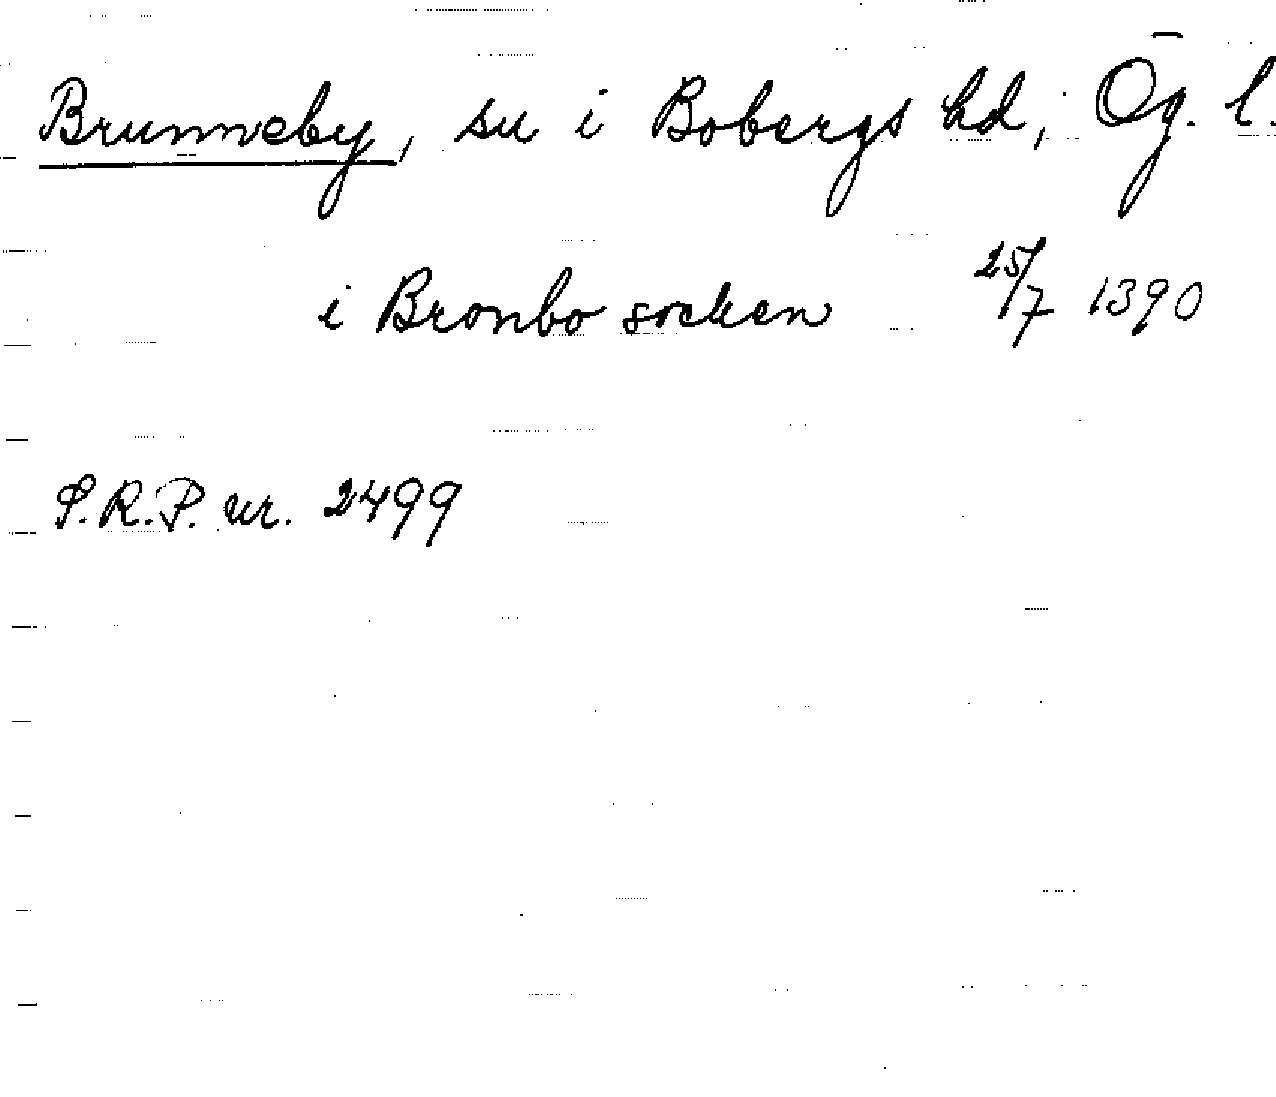 Brunneby, sn i Bobergs hd, Ög. l.
i Bronbo socken 25/7 1390
S.R.P. nr. 2499